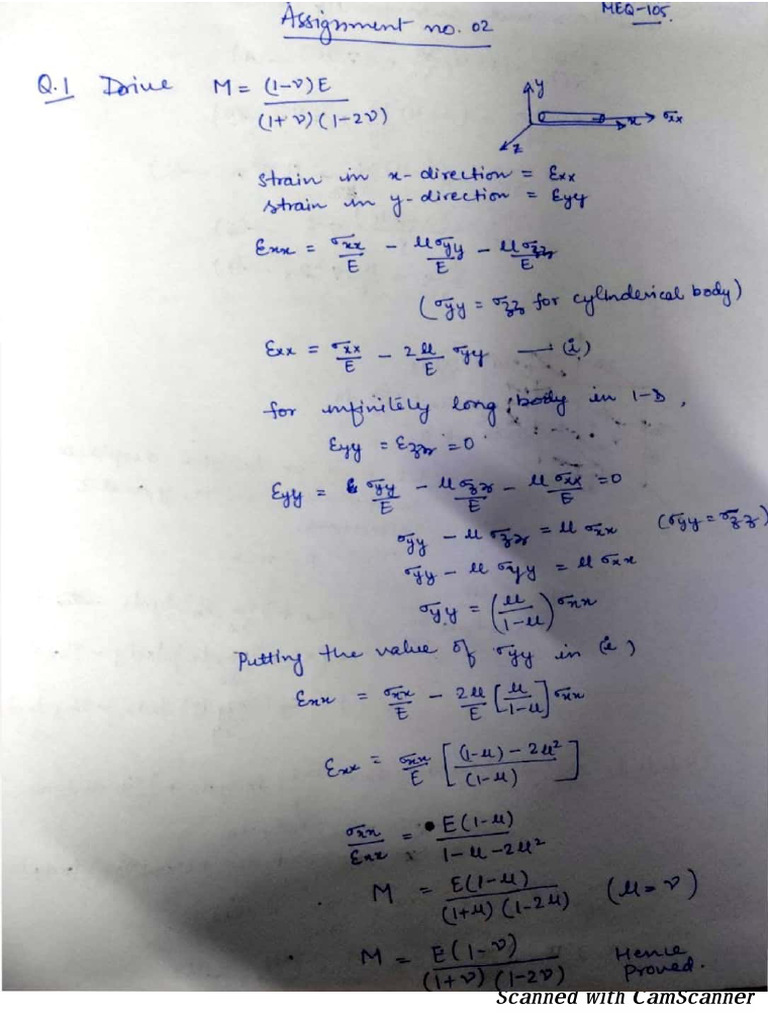 Assignment no. 02
MEQ-105
Q.1 Drive M = (1-ν)E / (1+ν)(1-2ν)
y
x → σxx
z
strain in x-direction = Exx
strain in y-direction = Eyy
Exx = σxx/E - μσyy/E - μσzz/E
(σyy = σzz for cylinderical body)
Exx = σxx/E - 2μ/E σyy → (i)
for infinitely long body in 1-D,
Eyy = Ezz = 0
Eyy = σyy/E - μσzz/E - μσxx/E = 0
σyy - μσzz = μσxx (σyy = σzz)
σyy - μσyy = μσxx
σyy = (μ/1-μ) σxx
Putting the value of σyy in (i)
Exx = σxx/E - 2μ/E [μ/1-μ] σxx
Exx = σxx/E [(1-μ) - 2μ²/(1-μ)]
σxx/Exx = E(1-μ)/1-μ-2μ²
M = E(1-μ)/(1+μ)(1-2μ) (μ=ν)
M = E(1-ν)/(1+ν)(1-2ν) Hence Proved.
Scanned with CamScanner